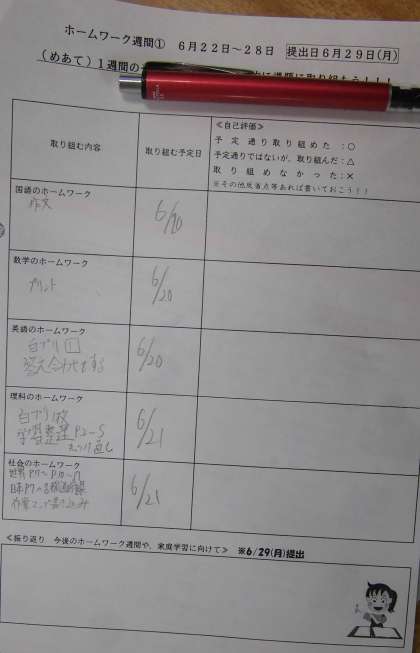 ホームワーク週間① 6月22日～28日 提出日6月29日(月)
(めあて)1週間の
取り組む内容
取り組む予定日
≪自己評価≫
予定通り取り組めた:○
予定通りではないが、取り組んだ:△
取り組めなかった:×
※その他反省点等あれば書いておこう!!
国語のホームワーク
作文
6/20
数学のホームワーク
プリント
6/20
英語のホームワーク
白プリ1
答え合わせする
6/20
理科のホームワーク
白プリ1枚
学習整理 P2～5
6/21
社会のホームワーク
6/21
≪振り返り 今後のホームワーク週間や、家庭学習に向けて≫ ※6/29(月)提出